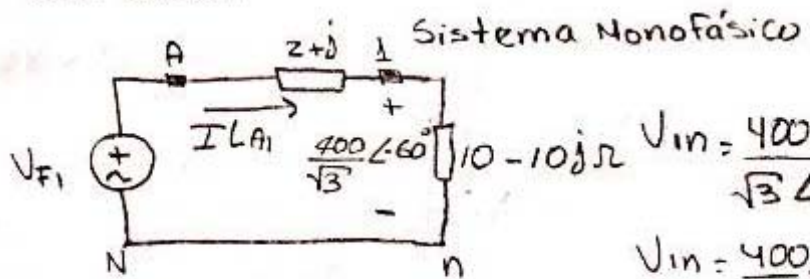 Sistema Monofásico
A 2+j 1
+
I L A1
VF1 400/√3 ∠-60° 10-10jΩ
-
N n
V1n = 400/√3 ∠
V1n = 400